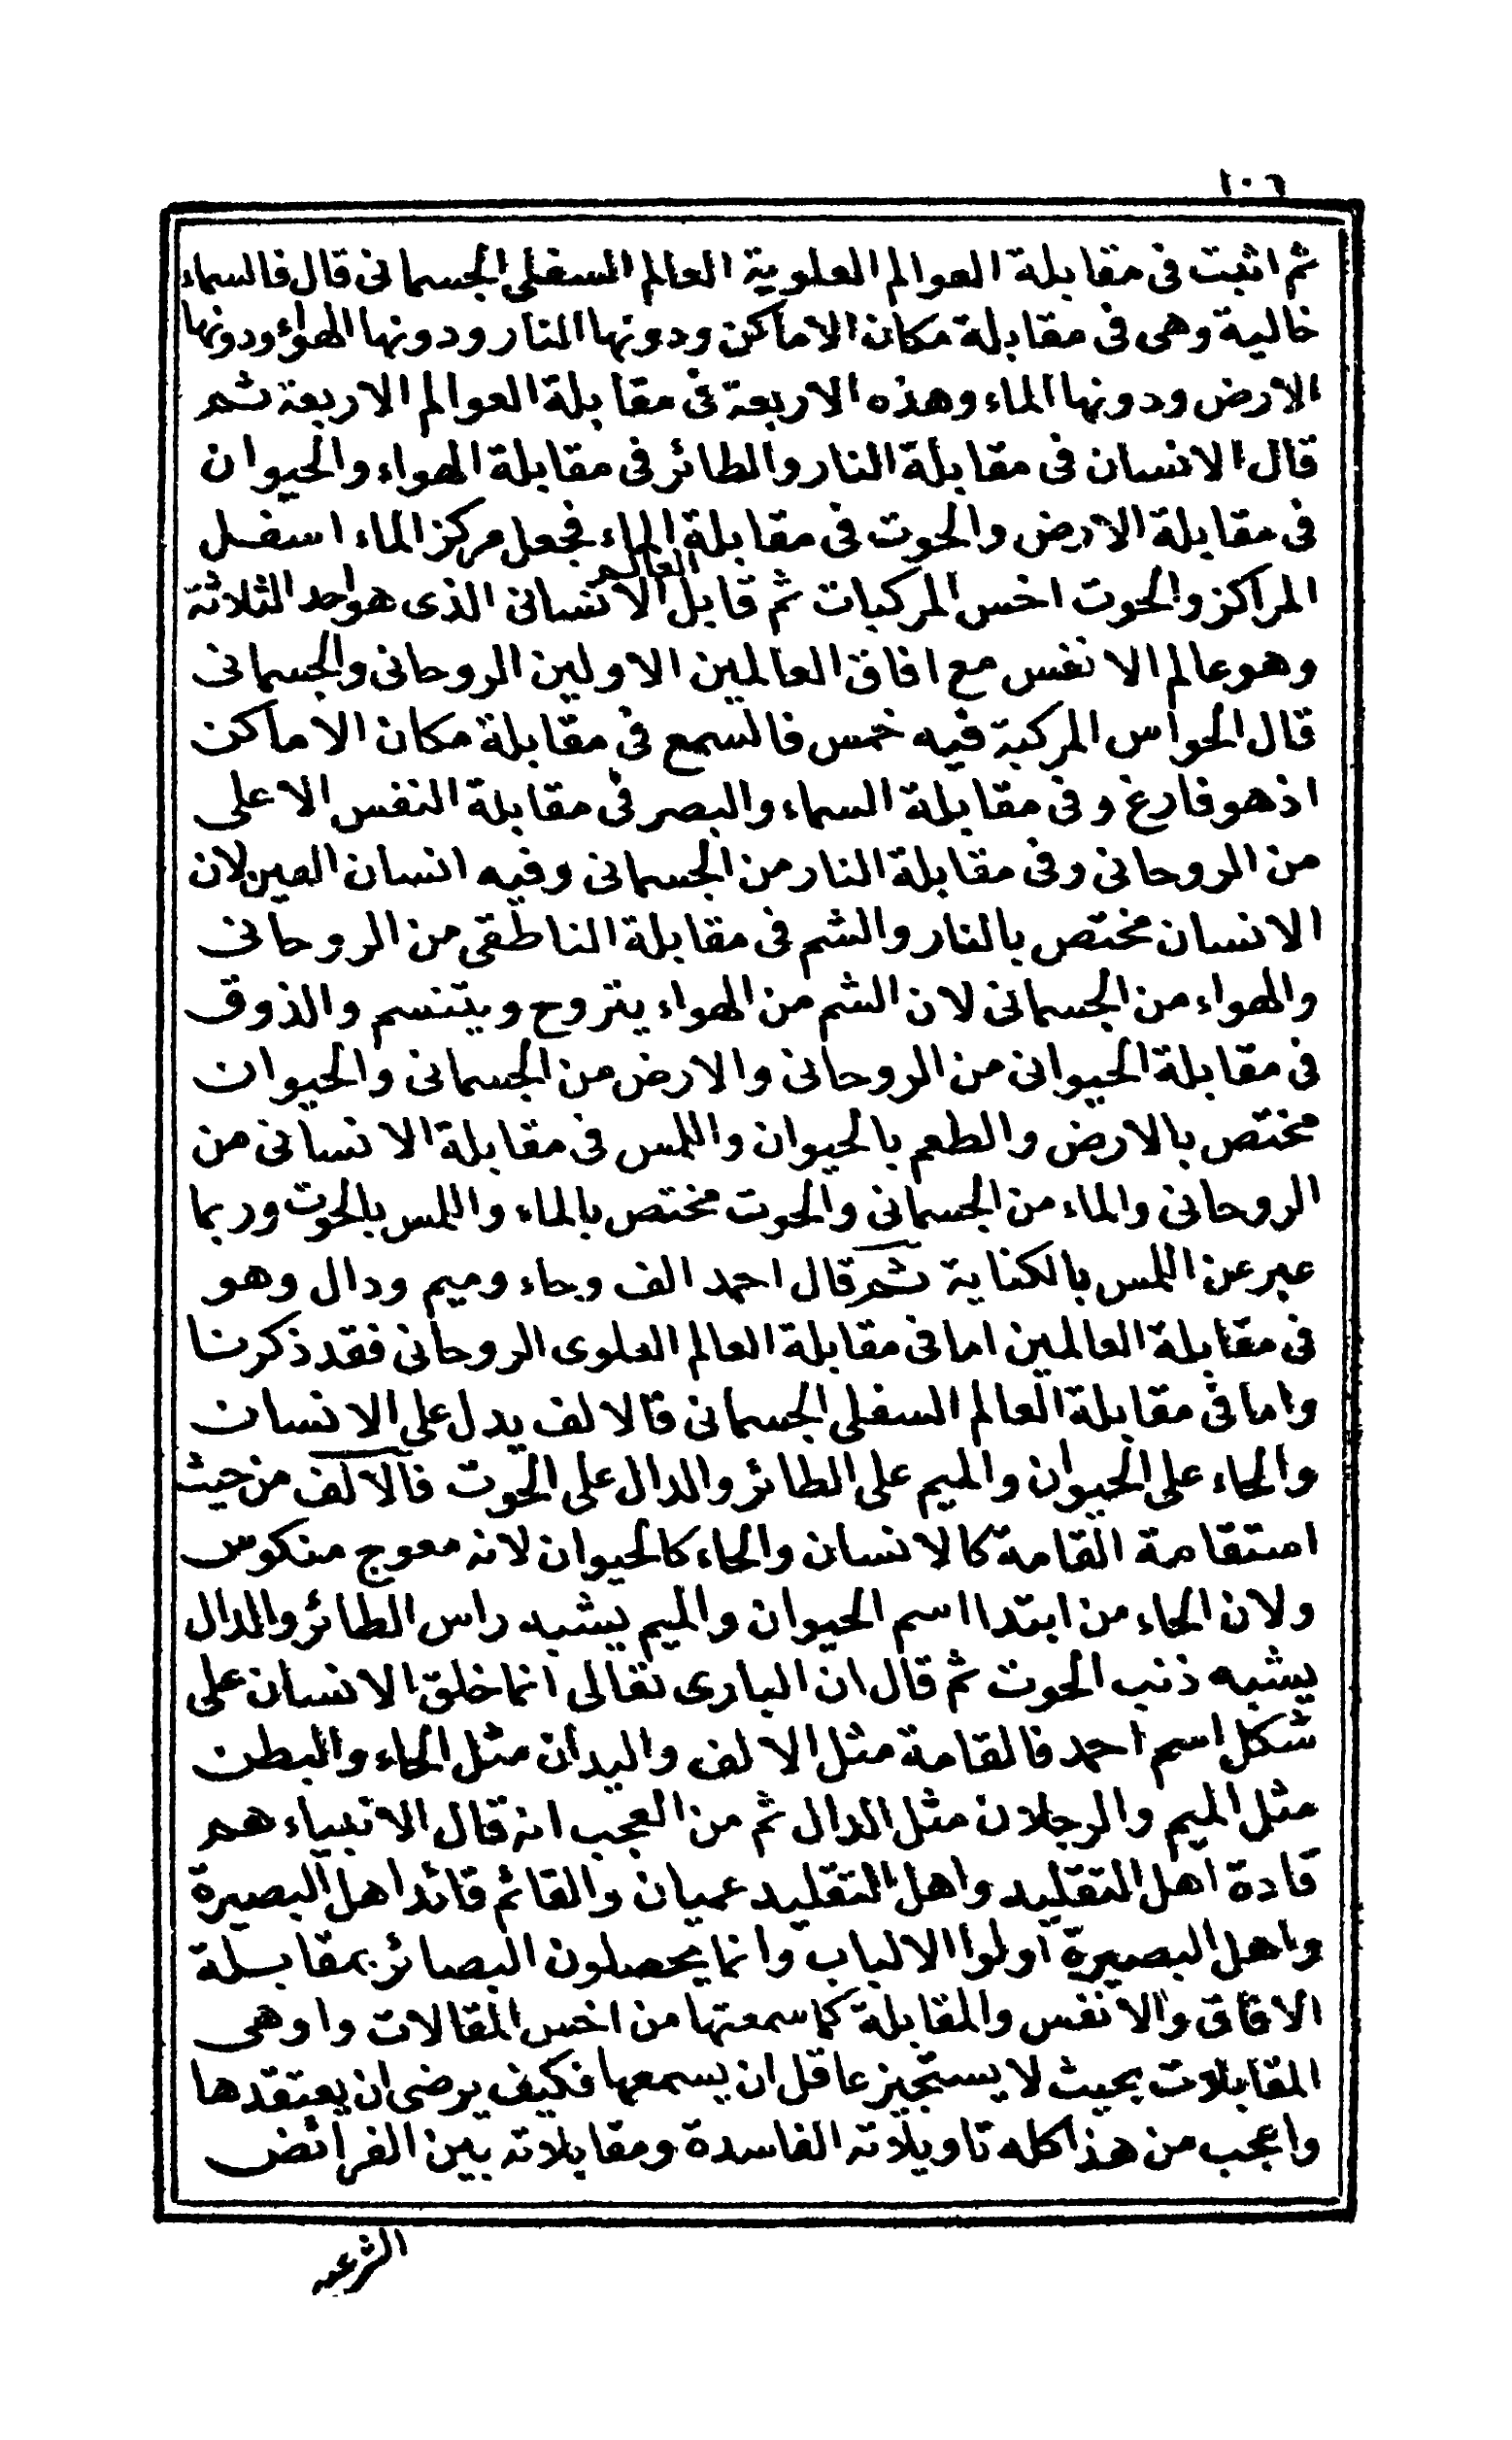 ١٠٦
ثم اثبت فى مقابلة العوالم العلوية العالم السفلى الجسمانى قال فالسماء
خالية وهى فى مقابلة مكان الاماكن ودونها النار ودونها الهواء ودونها
الارض ودونها الماء وهذه الاربعة فى مقابلة العوالم الاربعة ثم
قال الانسان فى مقابلة النار والطائر فى مقابلة الهواء والحيوان
فى مقابلة الارض والحوت فى مقابلة الماء فجعل مركز الماء اسفل
المراكز والحوت اخس المركبات ثم قابل العالم الانسانى الذى هو احد الثلاثة
وهو عالم الانفس مع افاق العالمين الاولين الروحانى والجسمانى
قال الحواس المركبة فيه خمس فالسمع فى مقابلة مكان الاماكن
اذ هو فارغ وفى مقابلة السماء والبصر فى مقابلة النفس الاعلى
من الروحانى وفى مقابلة النار من الجسمانى وفيه انسان العين لان
الانسان مختص بالنار والشم فى مقابلة الناطقى من الروحانى
والهواء من الجسمانى لان الشم من الهواء يتروح ويتنسم والذوق
فى مقابلة الحيوانى من الروحانى والارض من الجسمانى والحيوان
مختص بالارض والطعم بالحيوان واللمس فى مقابلة الانسانى من
الروحانى والماء من الجسمانى والحوت مختص بالماء واللمس بالحوت وربما
عبر عن اللمس بالكناية ثم قال احمد الف وحاء وميم ودال وهو
فى مقابلة العالمين اما فى مقابلة العالم العلوى الروحانى فقد ذكرنا
واما فى مقابلة العالم السفلى الجسمانى فالالف يدل على الانسان
والحاء على الحيوان والميم على الطائر والدال على الحوت فالالف من حيث
استقامة القامة كالانسان والحاء كالحيوان لانه معوج منكوس
ولان الحاء من ابتدا اسم الحيوان والميم يشبه راس الطائر والدال
يشبه ذنب الحوت ثم قال ان البارى تعالى انما خلق الانسان على
شكل اسم احمد فالقامة مثل الالف واليدان مثل الحاء والبطن
مثل الميم والرجلان مثل الدال ثم من العجب انه قال الانبياء هم
قادة اهل التقليد واهل التقليد عميان والقائم قائد اهل البصيرة
واهل البصيرة اولوا الالباب وانما يحصلون البصائر بمقابلة
الافاق والانفس والمقابلة كما سمعتها من اخس المقالات واوهى
المقابلات بحيث لا يستجيز عاقل ان يسمعها فكيف يرضى ان يعتقدها
واعجب من هذا كله تاويلاته الفاسدة ومقابلاته بين الفرائض
الشرعية